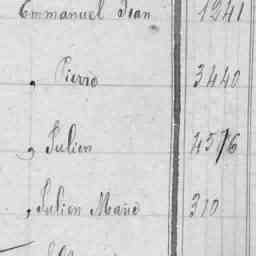 Emmanuel Jean 1241
, Pierre 3440
, Julien 4576
, Julien Marie 310